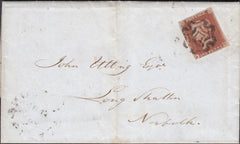 John Utting Esqre
Long Stratton
Norfolk